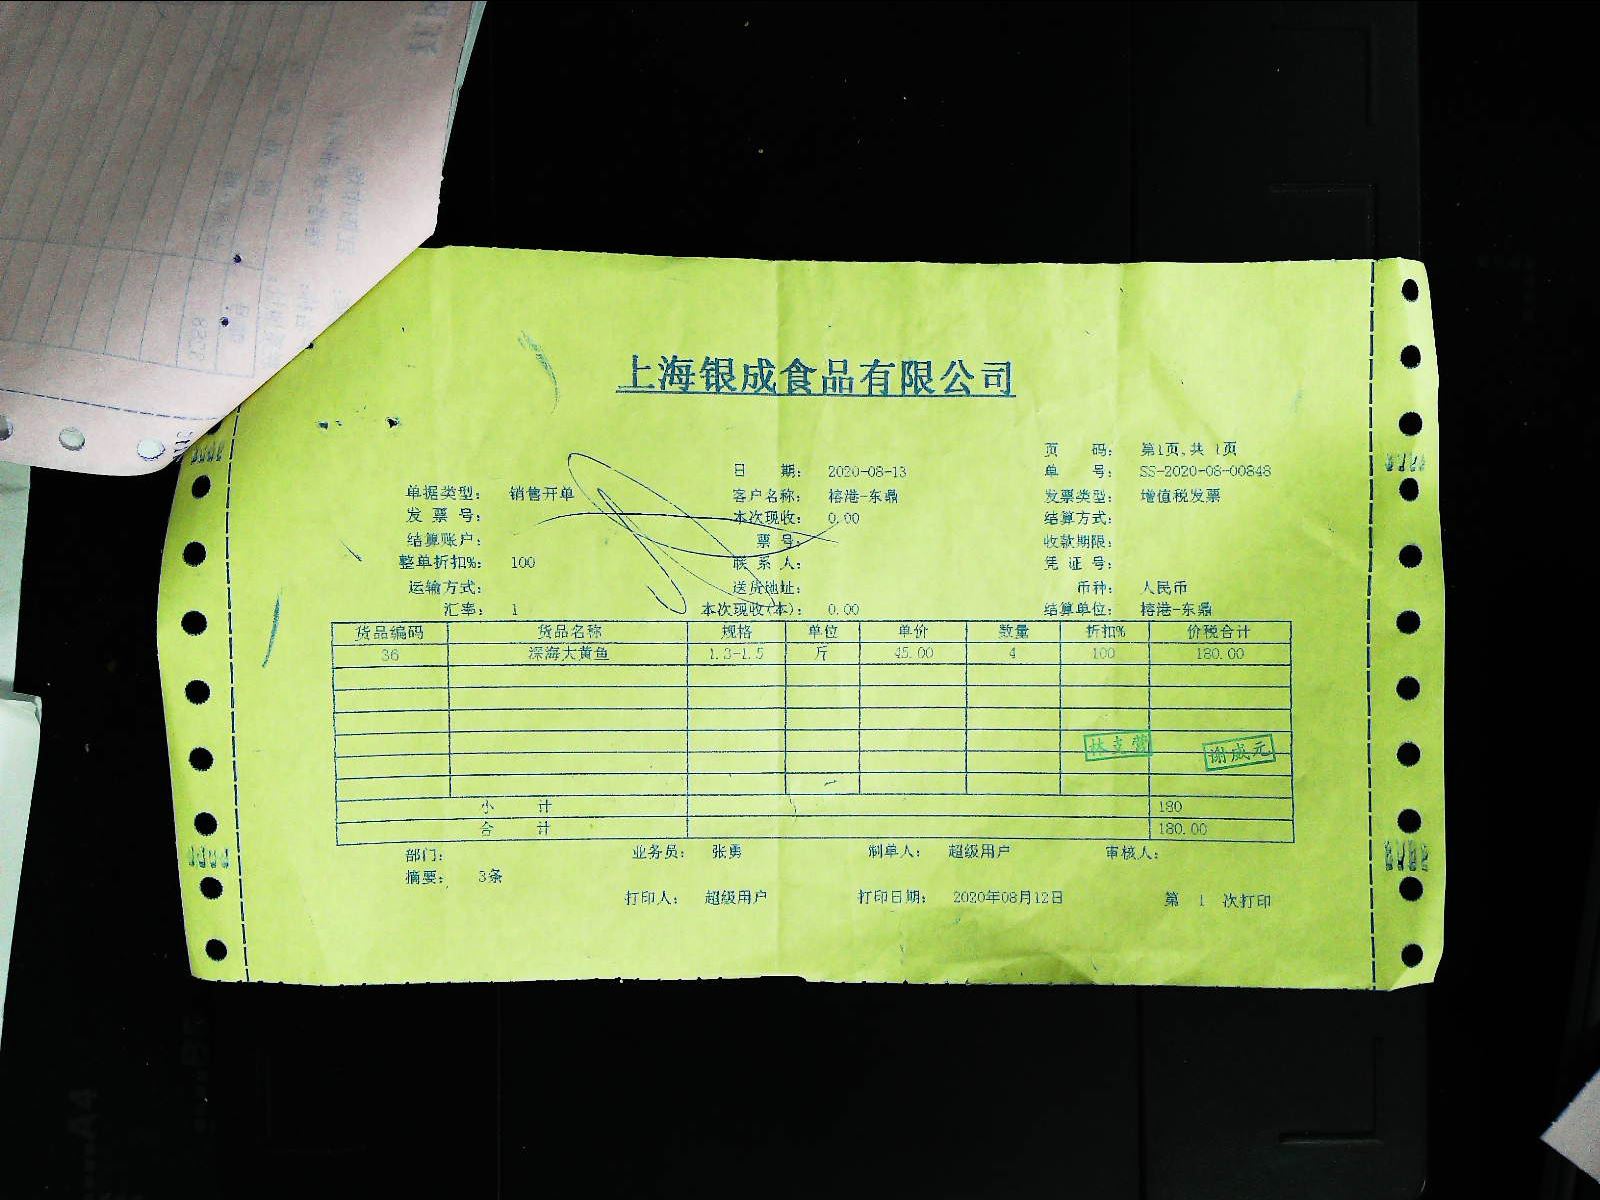 上海银成食品有限公司
页 码: 第1页,共 1页
日 期: 2020-08-13 单 号: SS-2020-08-00848
单据类型: 销售开单 客户名称: 榕港-东鼎 发票类型: 增值税发票
发 票 号: 本次现收: 0.00 结算方式:
结算账户: 票 号: 收款期限:
整单折扣%: 100 联 系 人: 凭 证 号:
运输方式: 送货地址: 币种: 人民币
汇率: 1 本次现收(本): 0.00 结算单位: 榕港-东鼎
货品编码 货品名称 规格 单位 单价 数量 折扣% 价税合计
36 深海大黄鱼 1.3-1.5 斤 45.00 4 100 180.00
谢成元
小 计 180
合 计 180.00
部门: 业务员: 张勇 制单人: 超级用户 审核人:
摘要: 3条
打印人: 超级用户 打印日期: 2020年08月12日 第 1 次打印